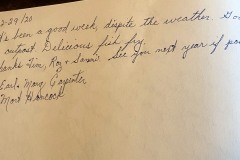 2-29/20
It's been a good week, dispite the weather. Goo
outpost Delicious fish fry.
hanks Tim, Roy & Sammi. See you next year if pos
Earl & Marg Carpenter
Mort Hancock